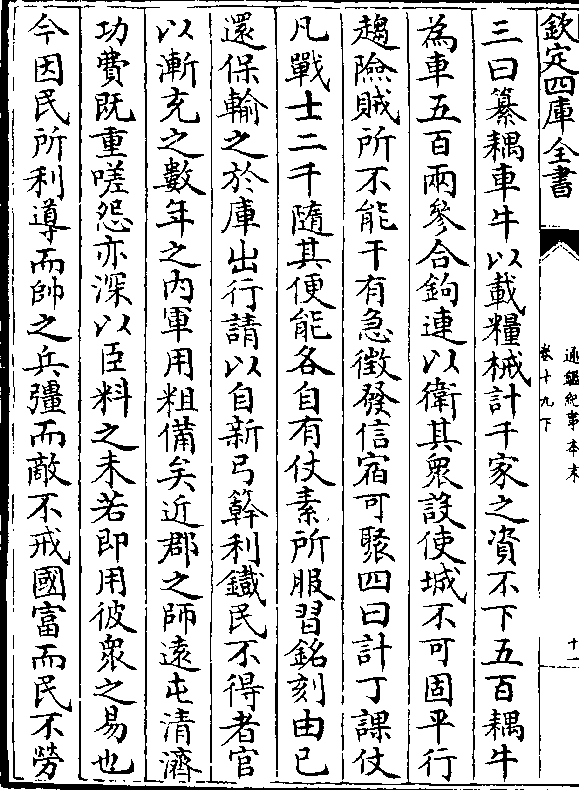 欽定四庫全書
通鑑紀事本末
卷十九下
十一
三曰纂耦車牛以載糧械計千家之資不下五百耦牛
為車五百兩參合鉤連以衛其衆設使城不可固平行
趨險賊所不能干有急徵發信宿可聚四曰計丁課仗
凡戰士二千隨其便能各自有仗素所服習銘刻由已
還保輸之於庫出行請以自新弓簳利鐵民不得者官
以漸充之數年之內軍用粗備矣近郡之師遠屯清濟
功費既重嗟怨亦深以臣料之未若即用彼衆之易也
今因民所利導而帥之兵彊而敵不戒國富而民不勞